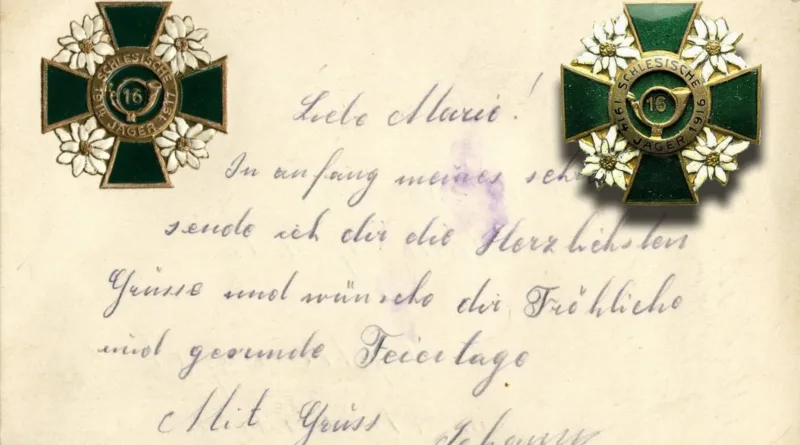 SCHLESISCHE
16
1914 JÄGER 1917
SCHLESISCHE
16
1914 JÄGER 1916
Liebe Marie!
In anfang meines
sende ich dir die Herzlichsten
Grüsse und wünsche dir Fröhliche
und gesunde Feiertage
Mit Grüss Johann